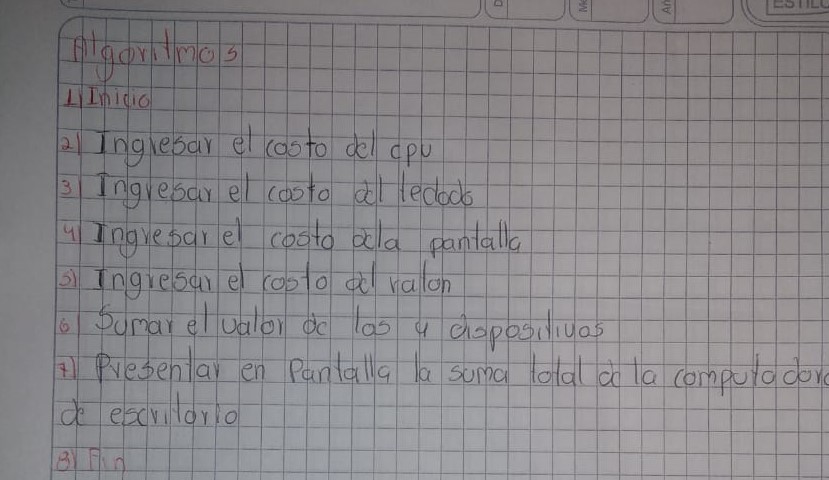 Algoritmos
1) Inicio
2) Ingresar el costo del cpu
3) Ingresar el costo del teclado
4) Ingresar el costo de la pantalla
5) Ingresar el costo del raton
6) Sumar el valor de los 4 dispositivos
7) Presentar en Pantalla la suma total de la computadora
de escritorio
8) Fin